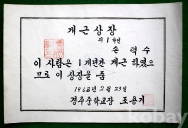 개근상장
제 1 학년
손덕수
이 사람은 1 개년간 개근 하였으
므로 이 상장을 줌
1962년 2월 23일
경주중학교장 조용기